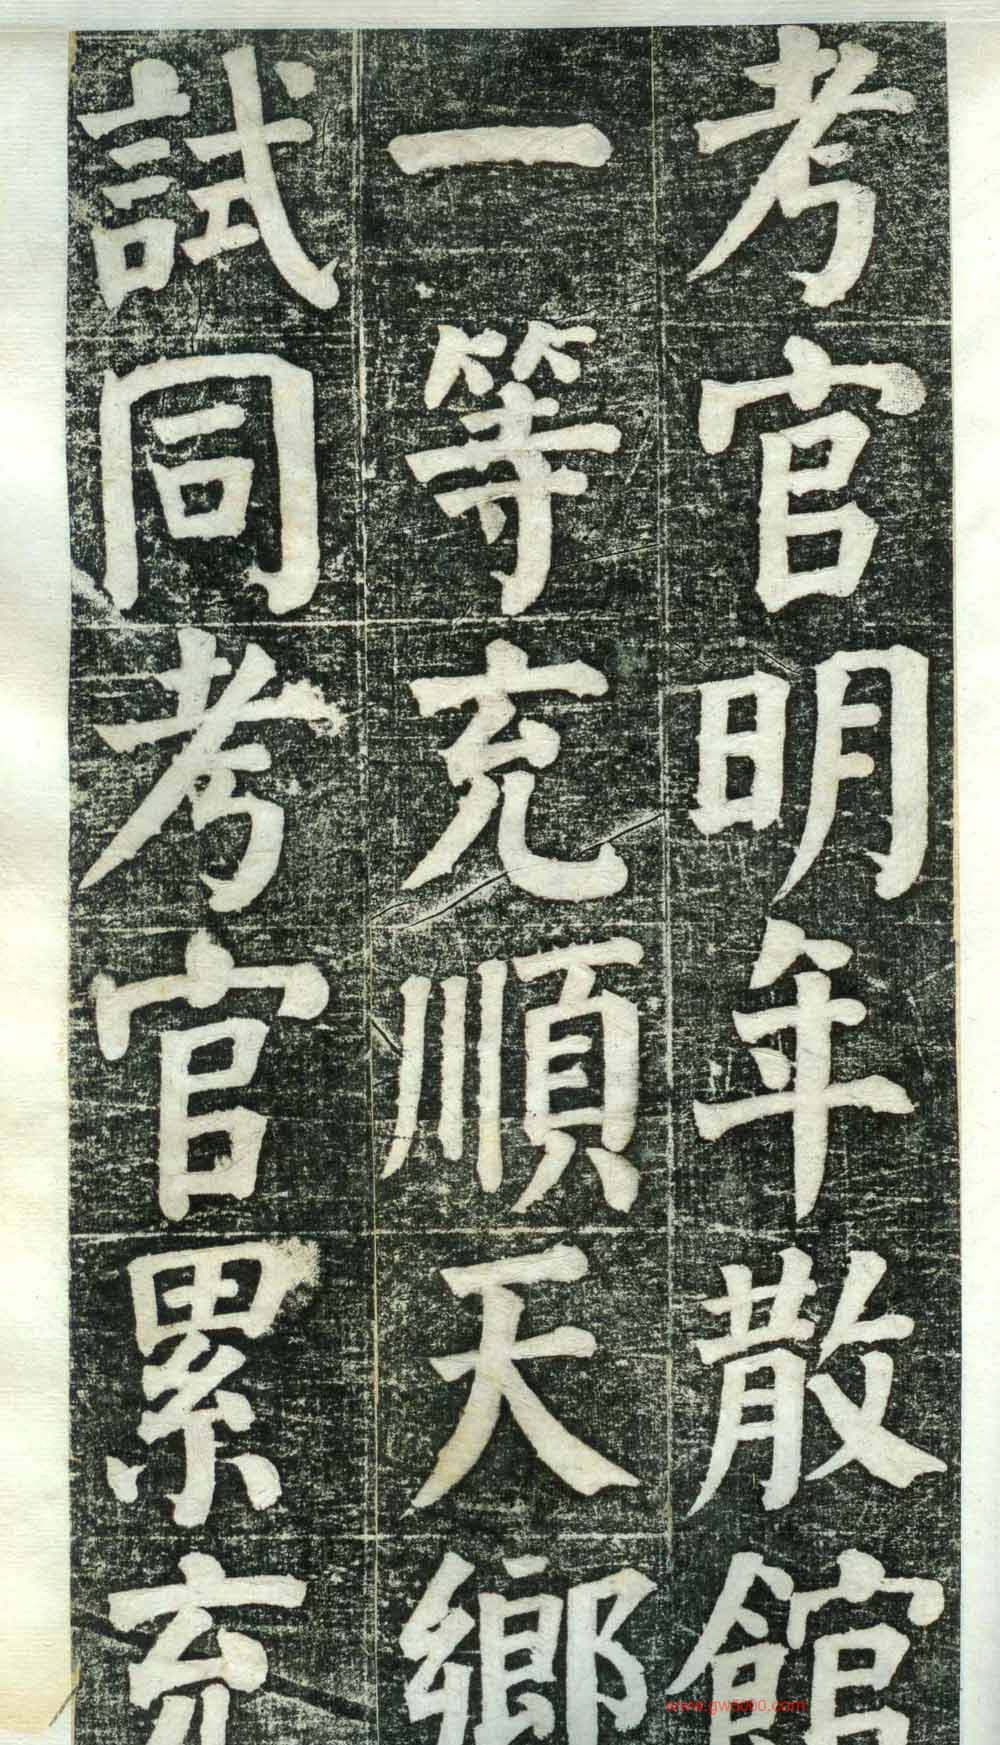 考官明年散館
一等充順天鄉
試同考官累充
www.gw5000.com